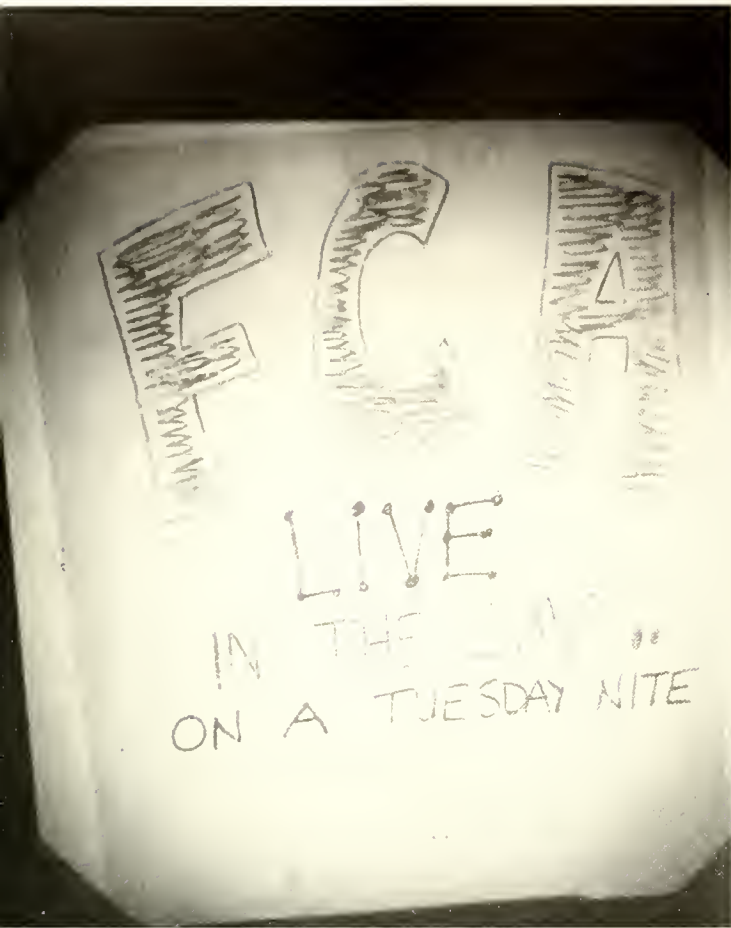 FCA
LIVE
IN THE
ON A TUESDAY NITE